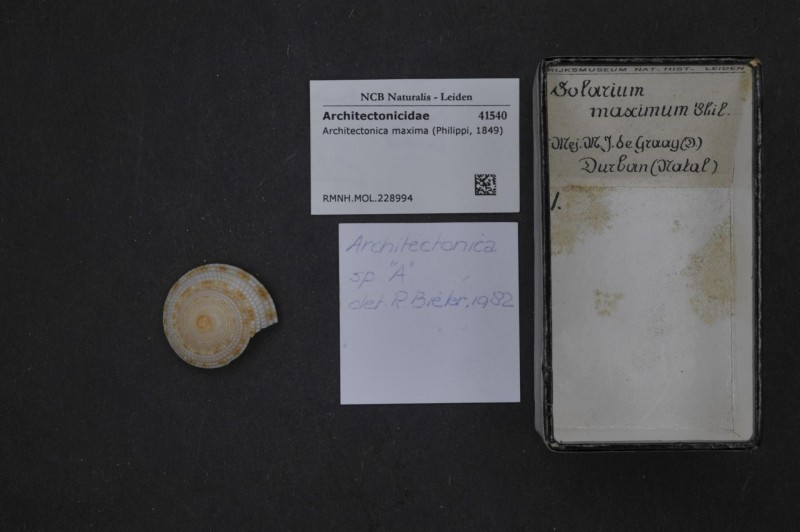 NCB Naturalis - Leiden
Architectonicidae 41540
Architectonica maxima (Philippi, 1849)
RMNH.MOL.228994
Architectonica
sp "A"
det. R. Bieler, 1982
RIJKSMUSEUM NAT. HIST. LEIDEN
Solarium
maximum Phil.
Mej. M. J. de Graay (D.)
Durban (Natal)
1.